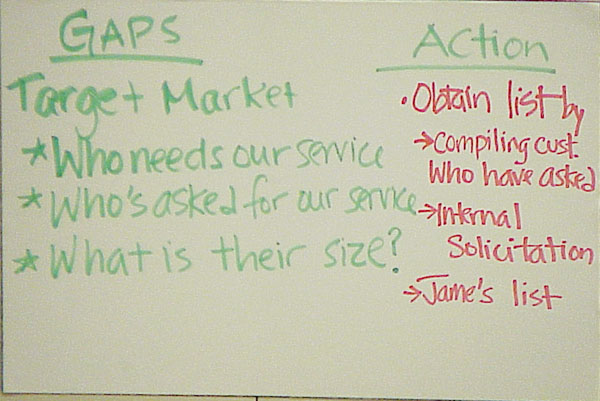 GAPS
Target Market
*Who needs our service
*Who's asked for our service
*What is their size?
Action
•Obtain list by
→Compiling cust.
Who have asked
→Internal
Solicitation
→Jame's list